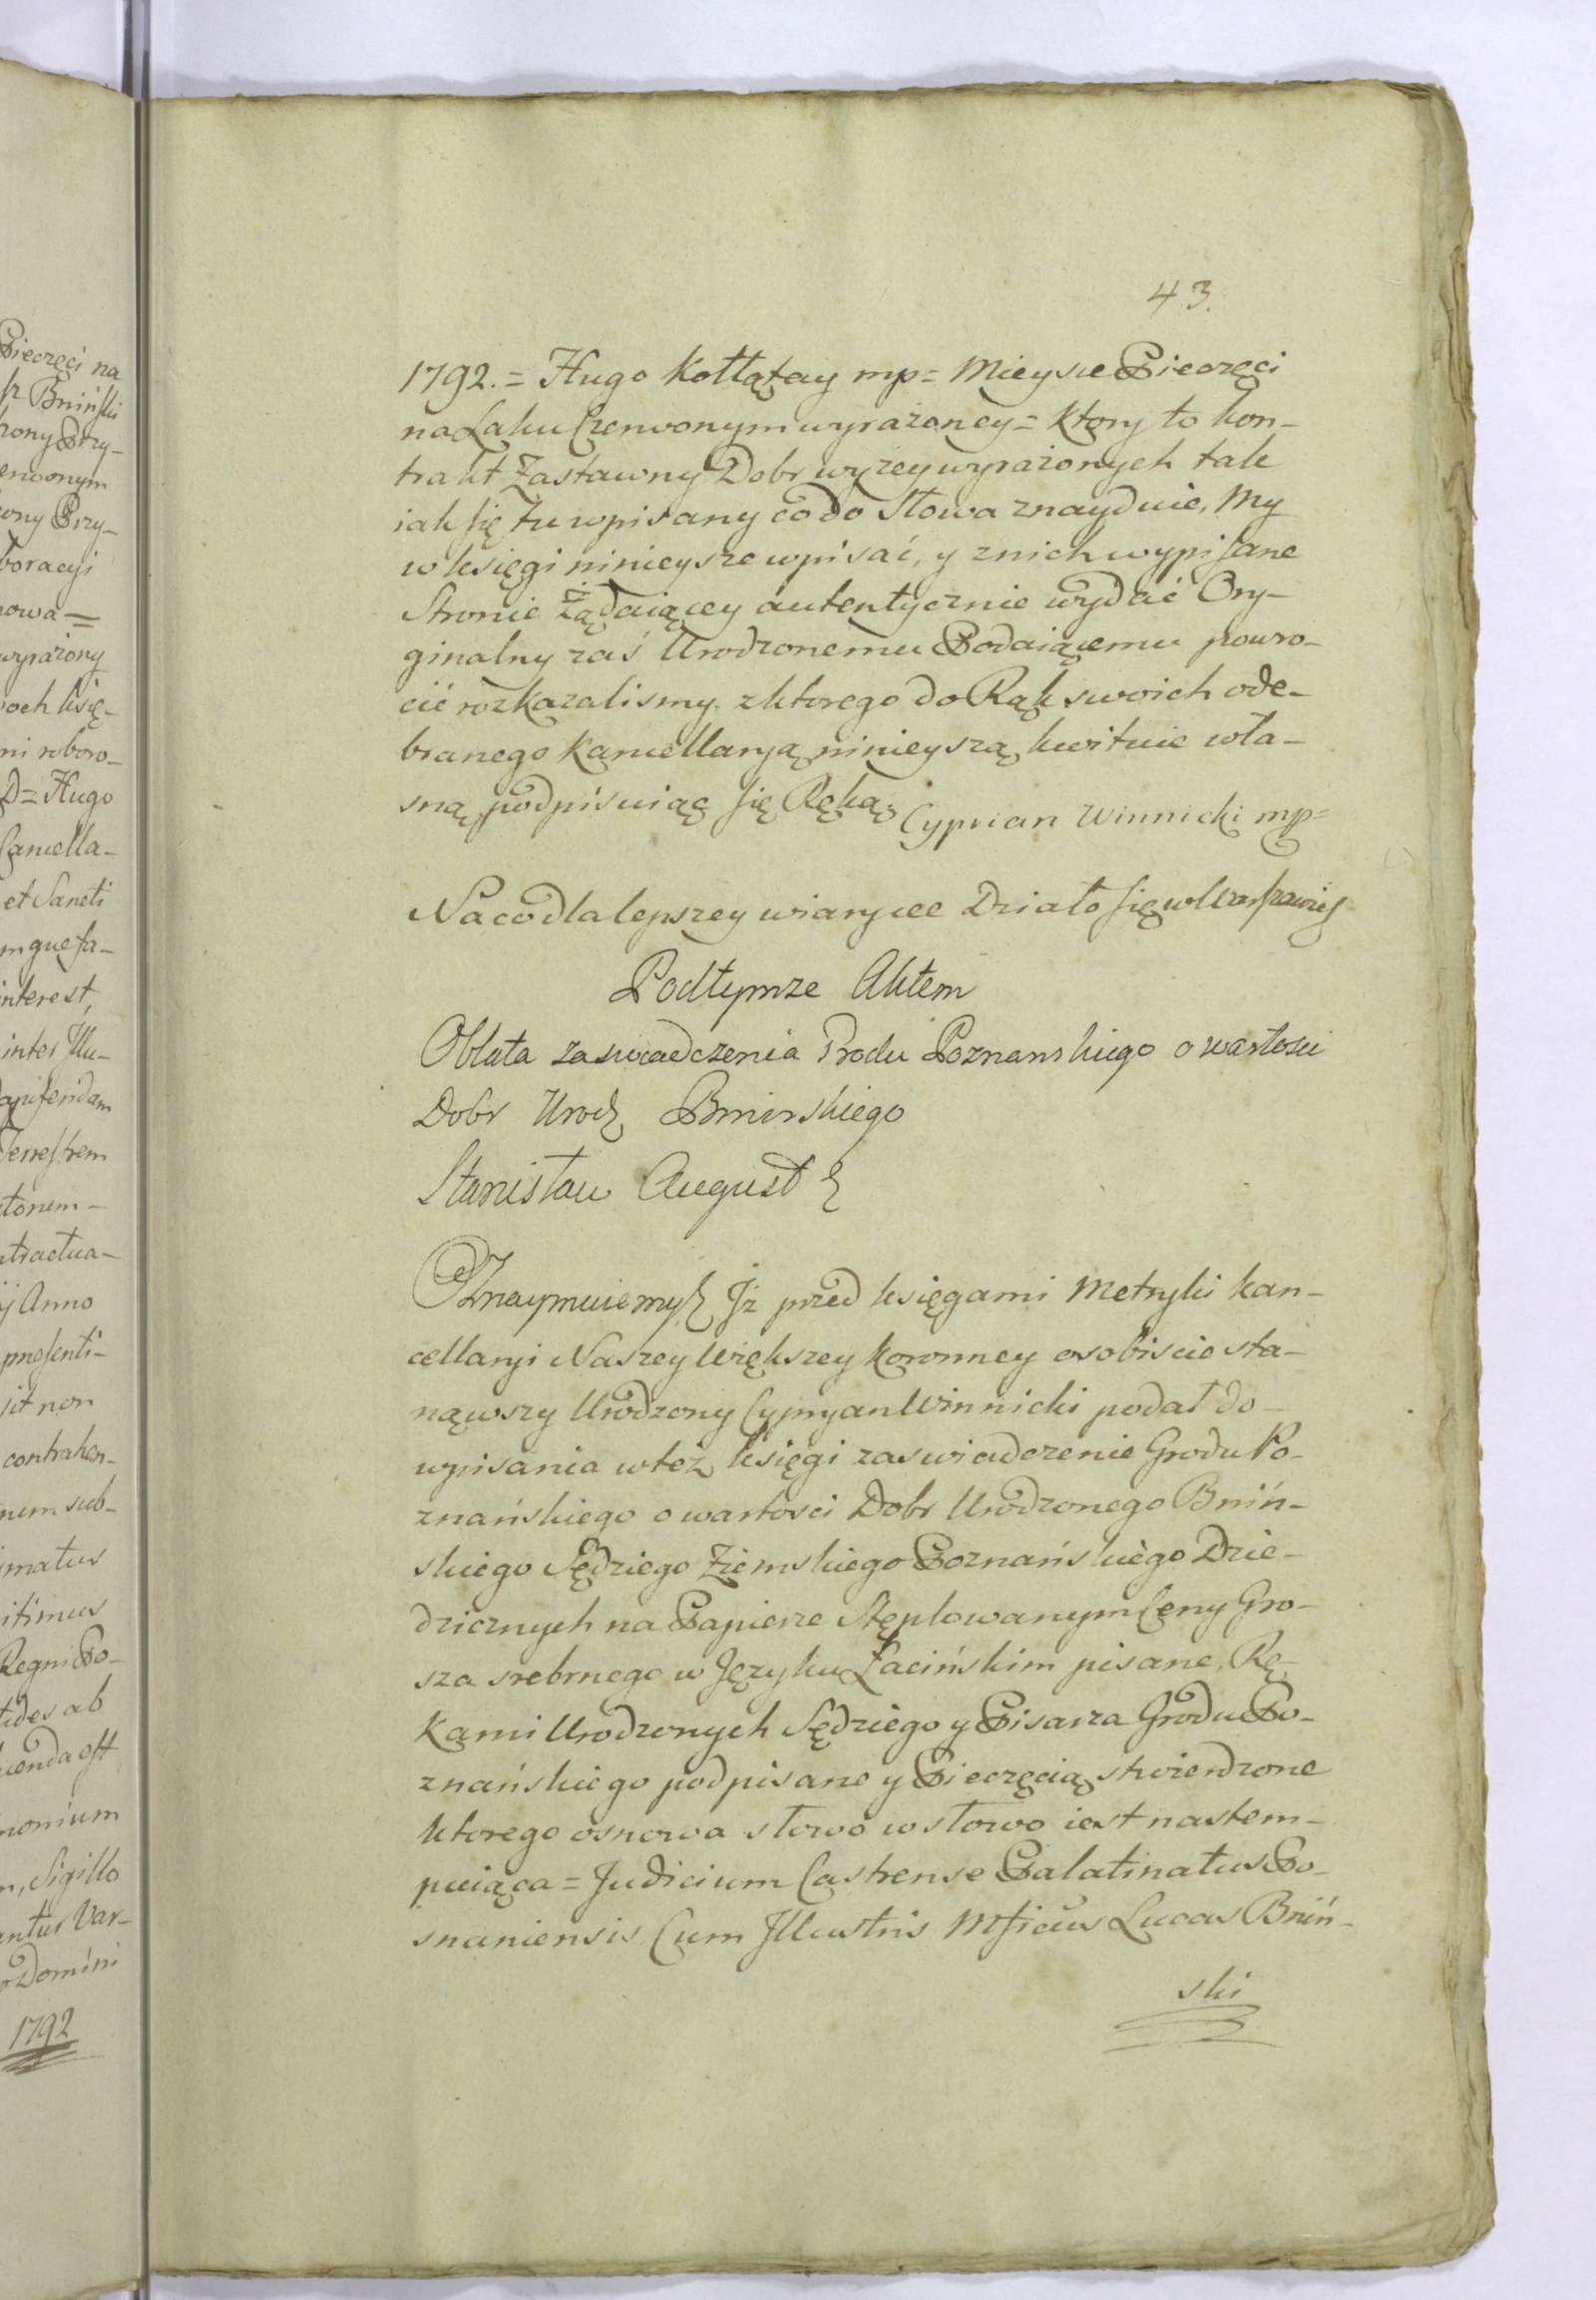 Pieczęci na
Bniński
rony Przy-
erwonym
ony Przy-
boracyi
nowa =
wyrażony
och Księ-
ni roboro-
D = Hugo
Cancella-
et Sancti
mque fa-
interest,
inter Illu-
Terrestrem
torem -
tractua-
ij Anno
presenti-
sit non
contrahen-
num sub-
imatus
itimus
Regni Po-
tides ab
uenda est
monium
m, Sigillo
antur Var-
o Domini
1792
43.
1792. = Hugo Kołłątay mp = Mieysce Pieczęci
na Laku Czerwonym wyrażoney = Ktory to kon-
trakt Zastawny Dobr wyzey wyrażonych tak
iak się tu wpisany co do Słowa znayduie, My
w księgi ninieysze wpisać, y z nich wypisane
Stronie Żądaiącey autentycznie wydać Ory-
ginalny zaś Urodzonemu Podaiącemu powro-
cić rozkazalismy. z ktorego do Rąk swoich ode-
branego Kancellaryą ninieyszą kwituie wła-
sną podpisuiąc się Ręką. Cyprian Winnicki mp =
Na co dla lepszey wiary ucc Działo się w Warszawie
Pod tymze Aktem
Oblata zaswiadczenia Grodu Poznanskiego o wartosci
Dobr Urodz Bninskiego
Stanisław August
Oznaymuiemy Iż przed księgami Metryki kan-
cellaryi Naszey Większey Koronney osobiscie sta-
nąwszy Urodzony Cypryan Winnicki podał do-
wpisania w też księgi zaswiadczenie Grodu Po-
znańskiego o wartosci Dobr Urodzonego Bniń-
skiego Sędziego Ziemskiego Poznańskiego Dzie-
dzicznych na Papierze Stęplowanym Ceny Gro-
sza srebrnego w Języku Łacińskim pisane, Rę-
kami Urodzonych Sędziego y Pisarza Grodu Po-
znańskiego podpisane y Pieczęcią stwierdzone
ktorego osnowa słowo w słowo iest nastem-
puiąca = Judicium Castrense Palatinatus Po-
snaniensis. Cum Illustris Mficus Lucas Bniń-
ski